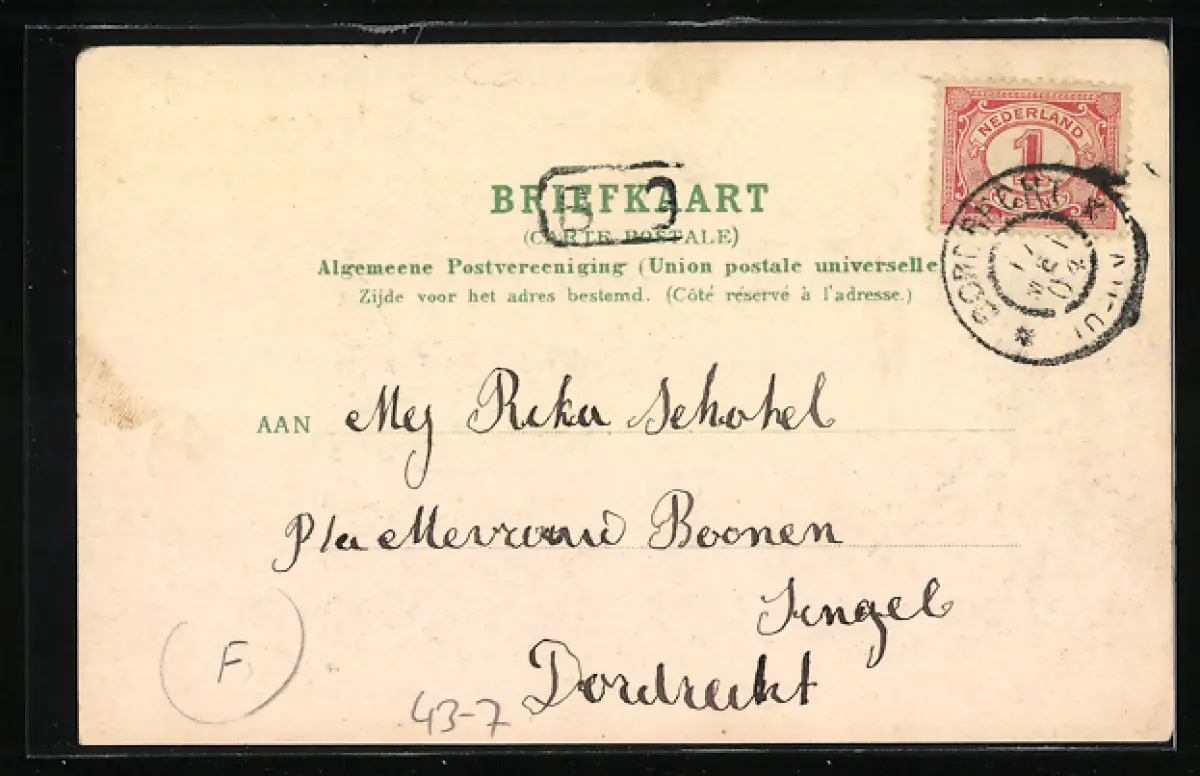 NEDERLAND
1
CENT
BRIEFKAART
B
(CARTE POSTALE)
Algemeene Postvereeniging (Union postale universelle
Zijde voor het adres bestemd. (Côté réservé à l'adresse.)
DORDRECHT
03
AAN Mej Reka Schotel
P/a Mevrouw Boonen
Singel
Dordrecht
F
43-7